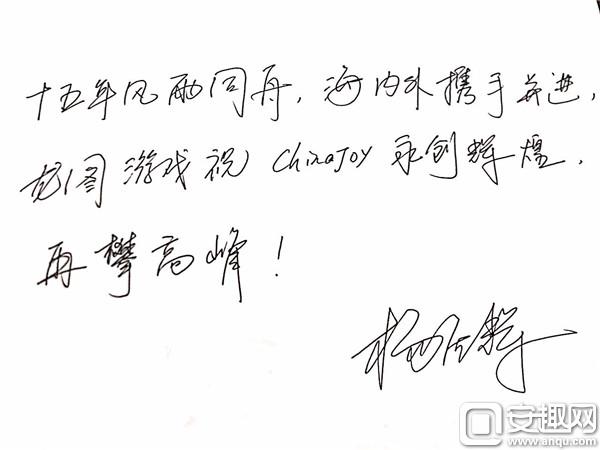 十五年风雨同舟，海内外携手并进，
龙图游戏祝ChinaJoy永创辉煌，
再攀高峰！
杨圣辉
安趣网
www.anqu.com